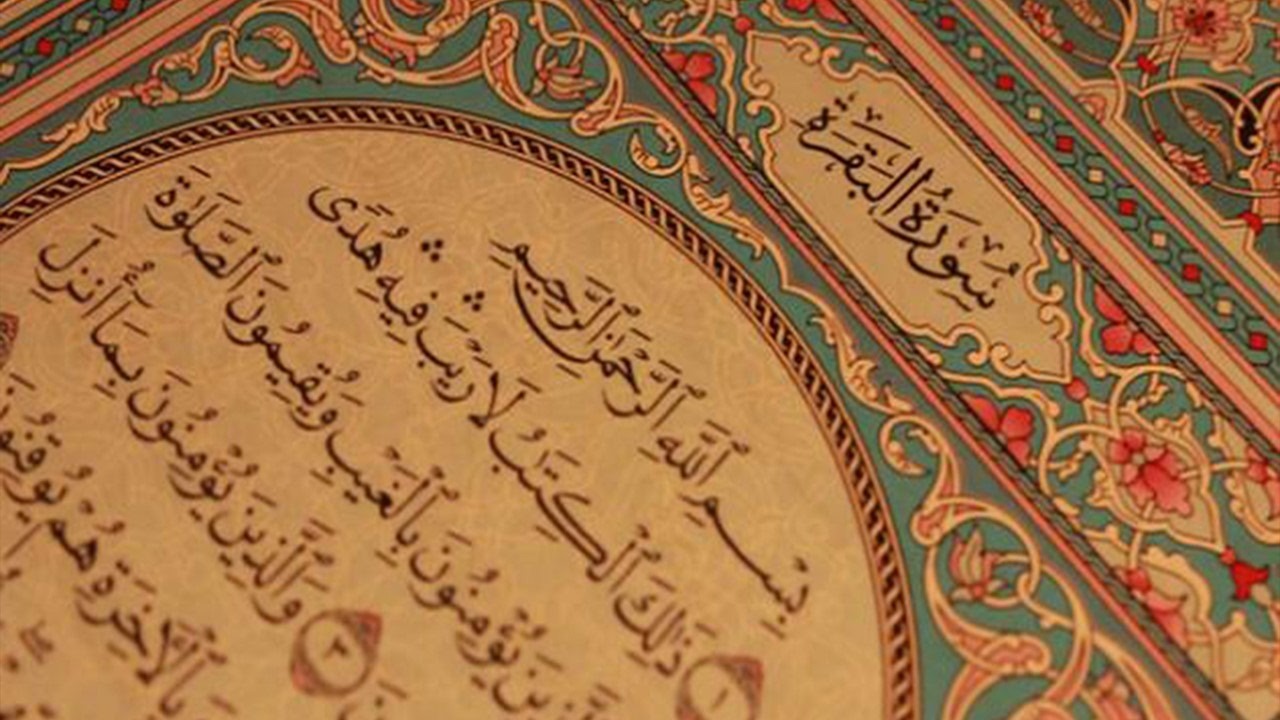 سُورَةُ الْبَقَرَةِ
بِسْمِ ٱللَّهِ ٱلرَّحْمَٰنِ ٱلرَّحِيمِ
١ ذَٰلِكَ ٱلْكِتَٰبُ لَا رَيْبَ ۛ فِيهِ ۛ هُدًى
يُؤْمِنُونَ بِٱلْغَيْبِ وَيُقِيمُونَ ٱلصَّلَوٰةَ
٣ وَٱلَّذِينَ يُؤْمِنُونَ بِمَآ أُنزِلَ
بِٱلْءَاخِرَةِ هُمْ يُوقِنُونَ